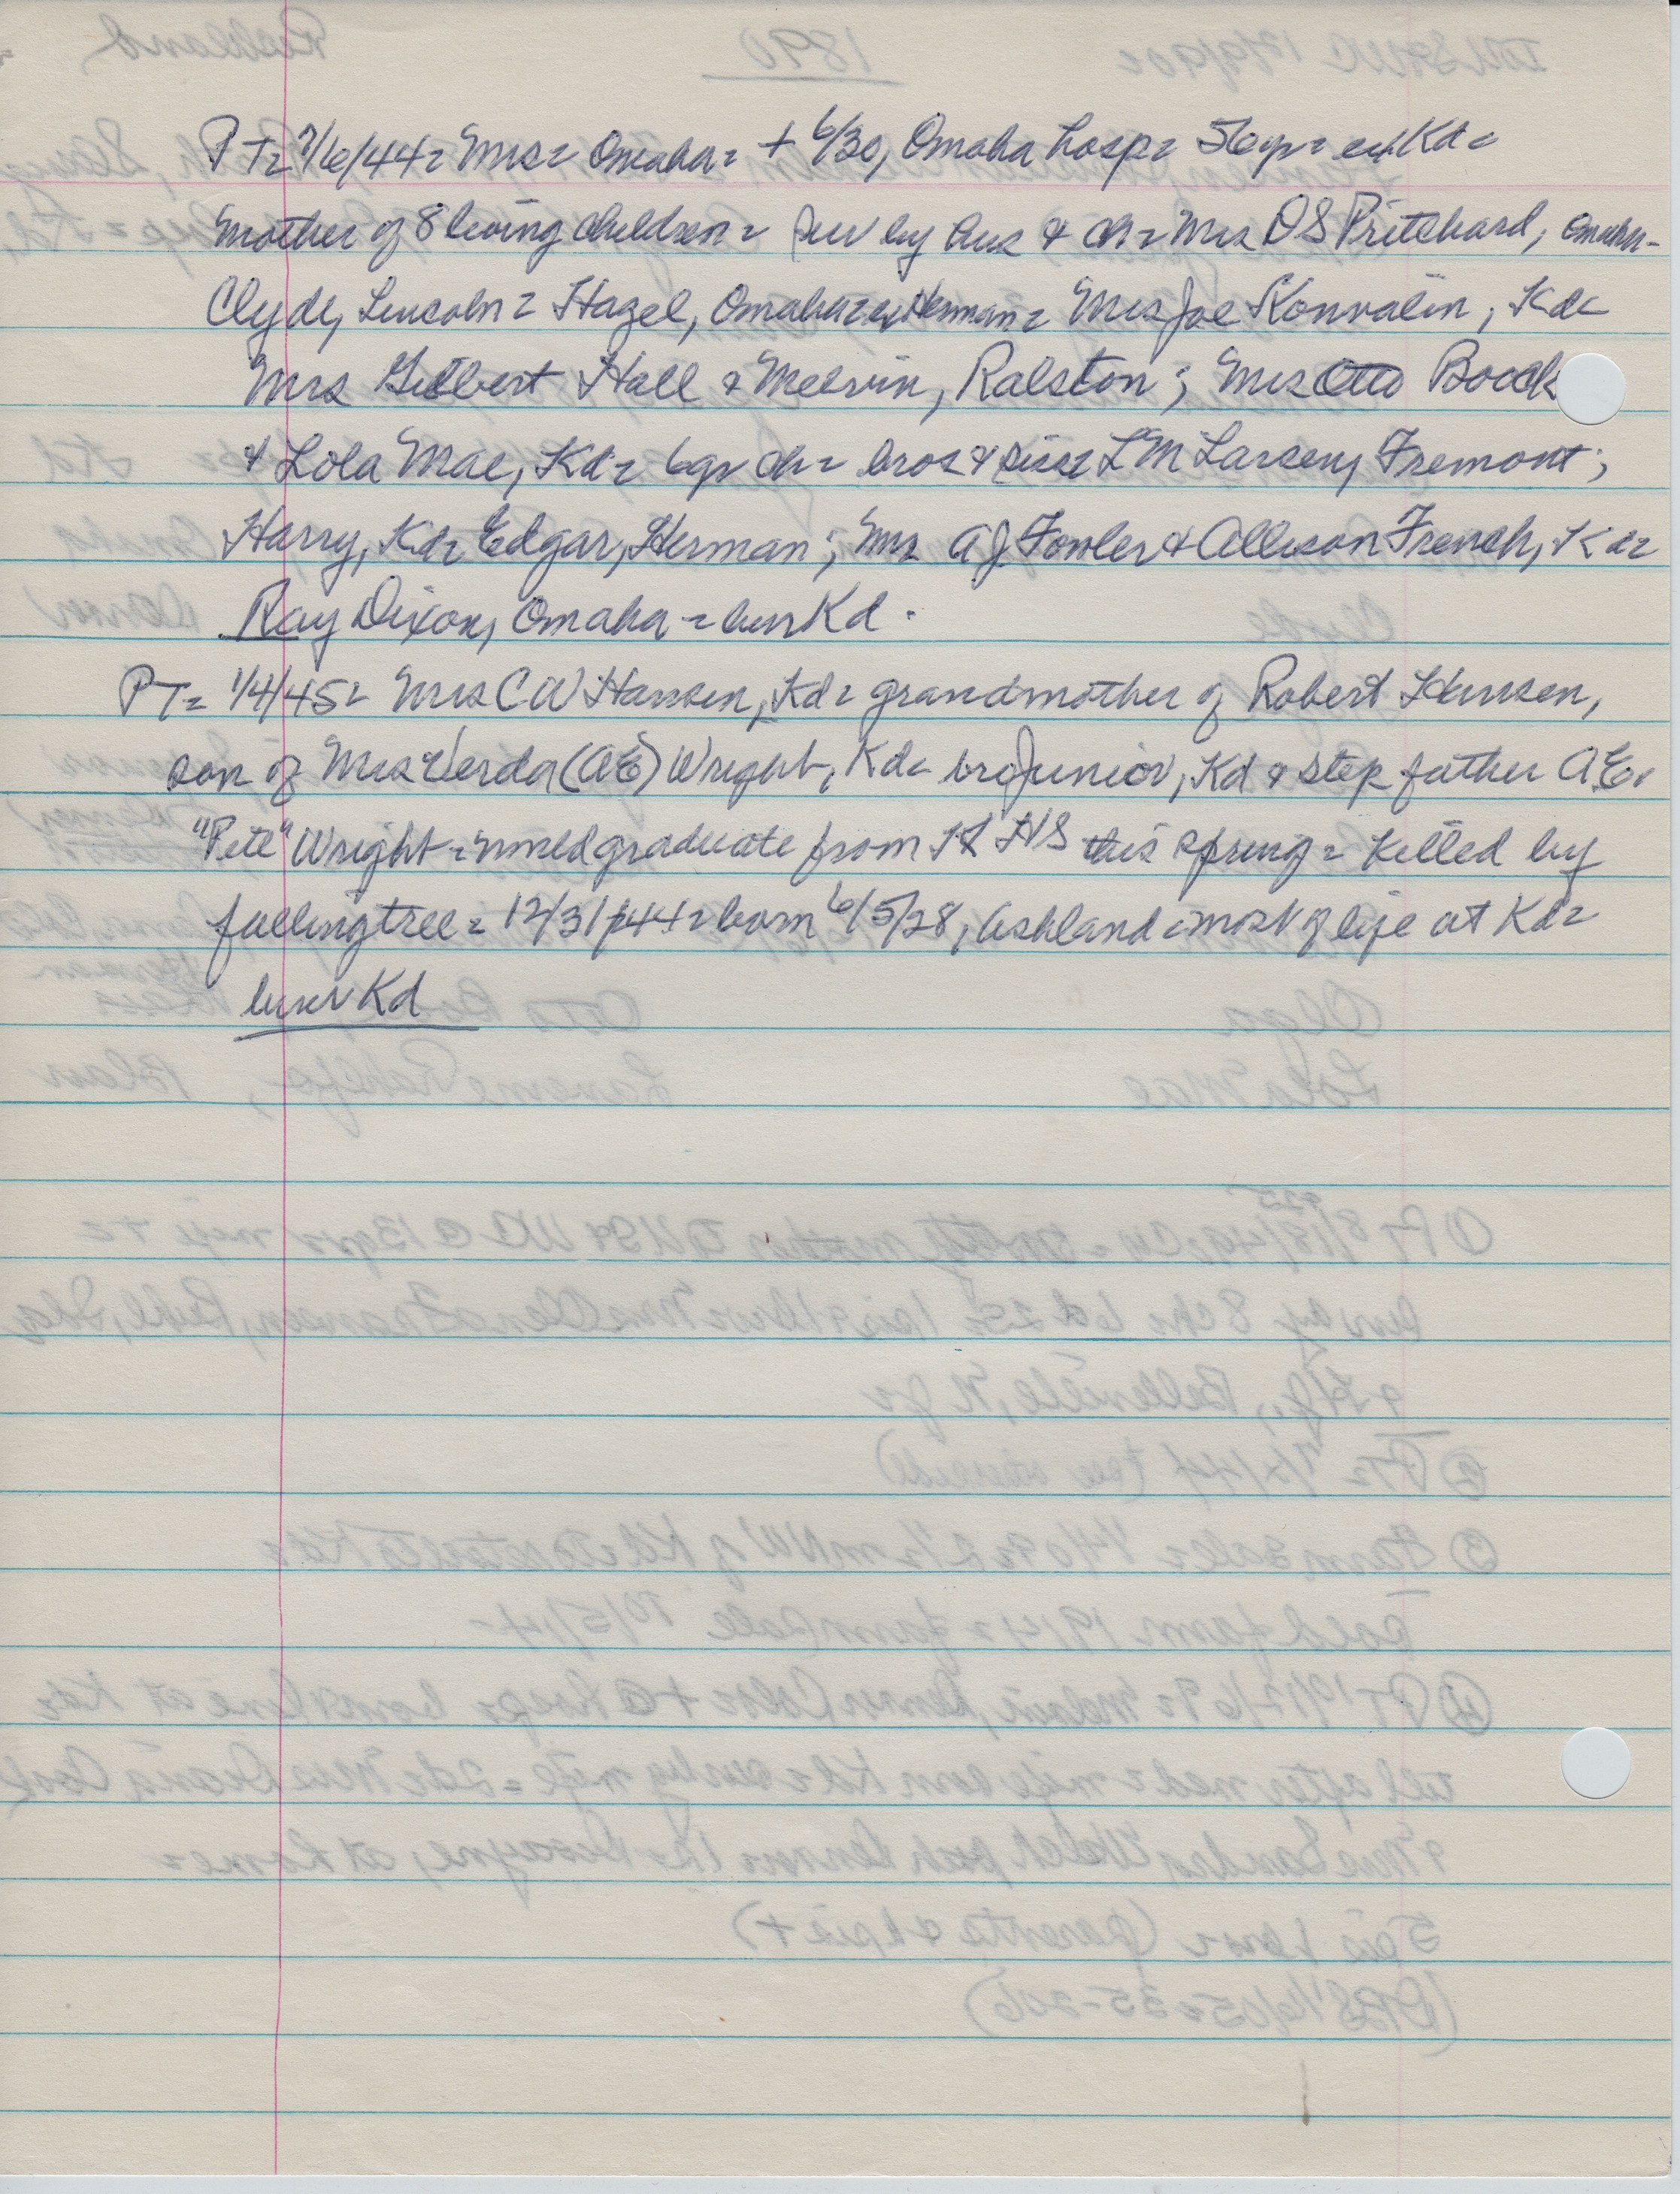 PT= 7/6/44= Mrs= Omaha= + 6/30, Omaha hosp= 56yr= ex Kd=
Mother of 8 living children= Sur by hus & ch= Mrs O S Pritchard, Omaha-
Clyde, Lincoln= Hazel, Omaha= ex Herman= Mrs Joe Konvalin, Kd=
Mrs Gilbert Hall & Melvin, Ralston; Mrs Otto Bocck
& Lola Mae, Kd= 6 gr ch= bros & sis= L M Larsen, Fremont;
Harry, Kd= Edgar, Herman; Mrs A J Fowler & Allison French, Kd=
Ray Dixon, Omaha = bur Kd.
PT= 1/4/45= Mrs C W Hansen, Kd= grandmother of Robert Hansen,
son of Mrs Verda (AE) Wright, Kd= bro Junior, Kd & step father A E.
"Pete" Wright= would graduate from HS this spring= Killed by
falling tree= 12/31/44= born 6/5/28, Ashland= most of life at Kd=
bur Kd